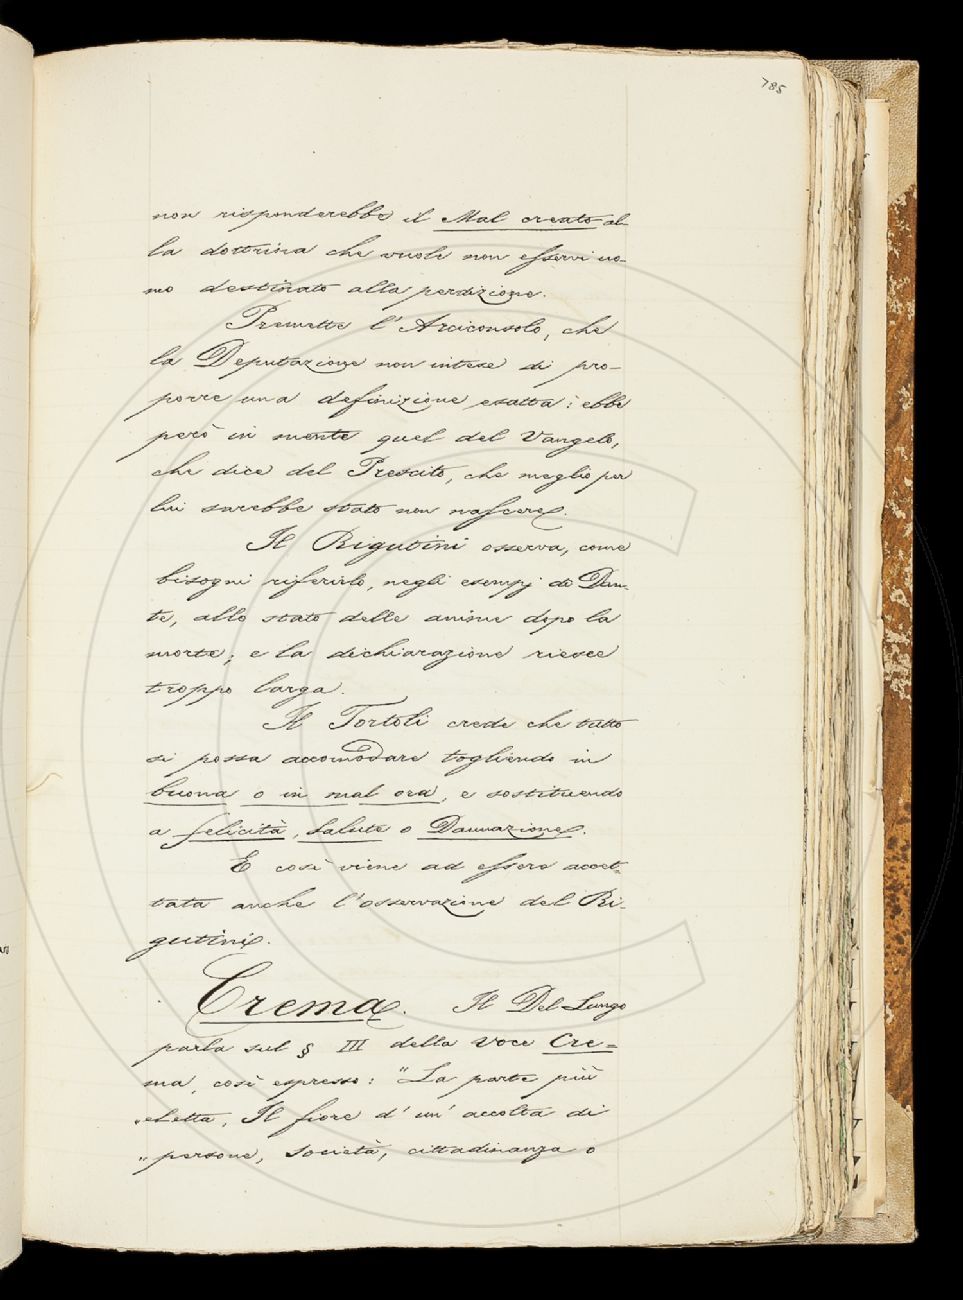 785
non risponderebbe il Mal creato al-
la dottrina che vuole non esservi uo-
mo destinato alla perdizione.
Premette l'Arciconsolo, che
la Deputazione non intese di pro-
porre una definizione esatta: ebbe
però in mente quel del Vangelo,
che dice del Prescito, che meglio per
lui sarebbe stato non nascere.
Il Rigutini osserva, come
bisogni riferirlo, negli esempj di Dan-
te, allo stato delle anime dopo la
morte; e la dichiarazione riesce
troppo larga.
Il Tortoli crede che tutto
si possa accomodare togliendo in
buona o in mal ora, e sostituendo
a felicità, salute o Dannazione.
E così viene ad essere accet-
tata anche l'osservazione del Ri-
gutini.
Crema. Il Del-Lungo
parla sul § III della Voce Cre=
ma, così espresso: "La parte più
„eletta, Il fiore d'un'accolta di
„persone, Società, cittadinanza o